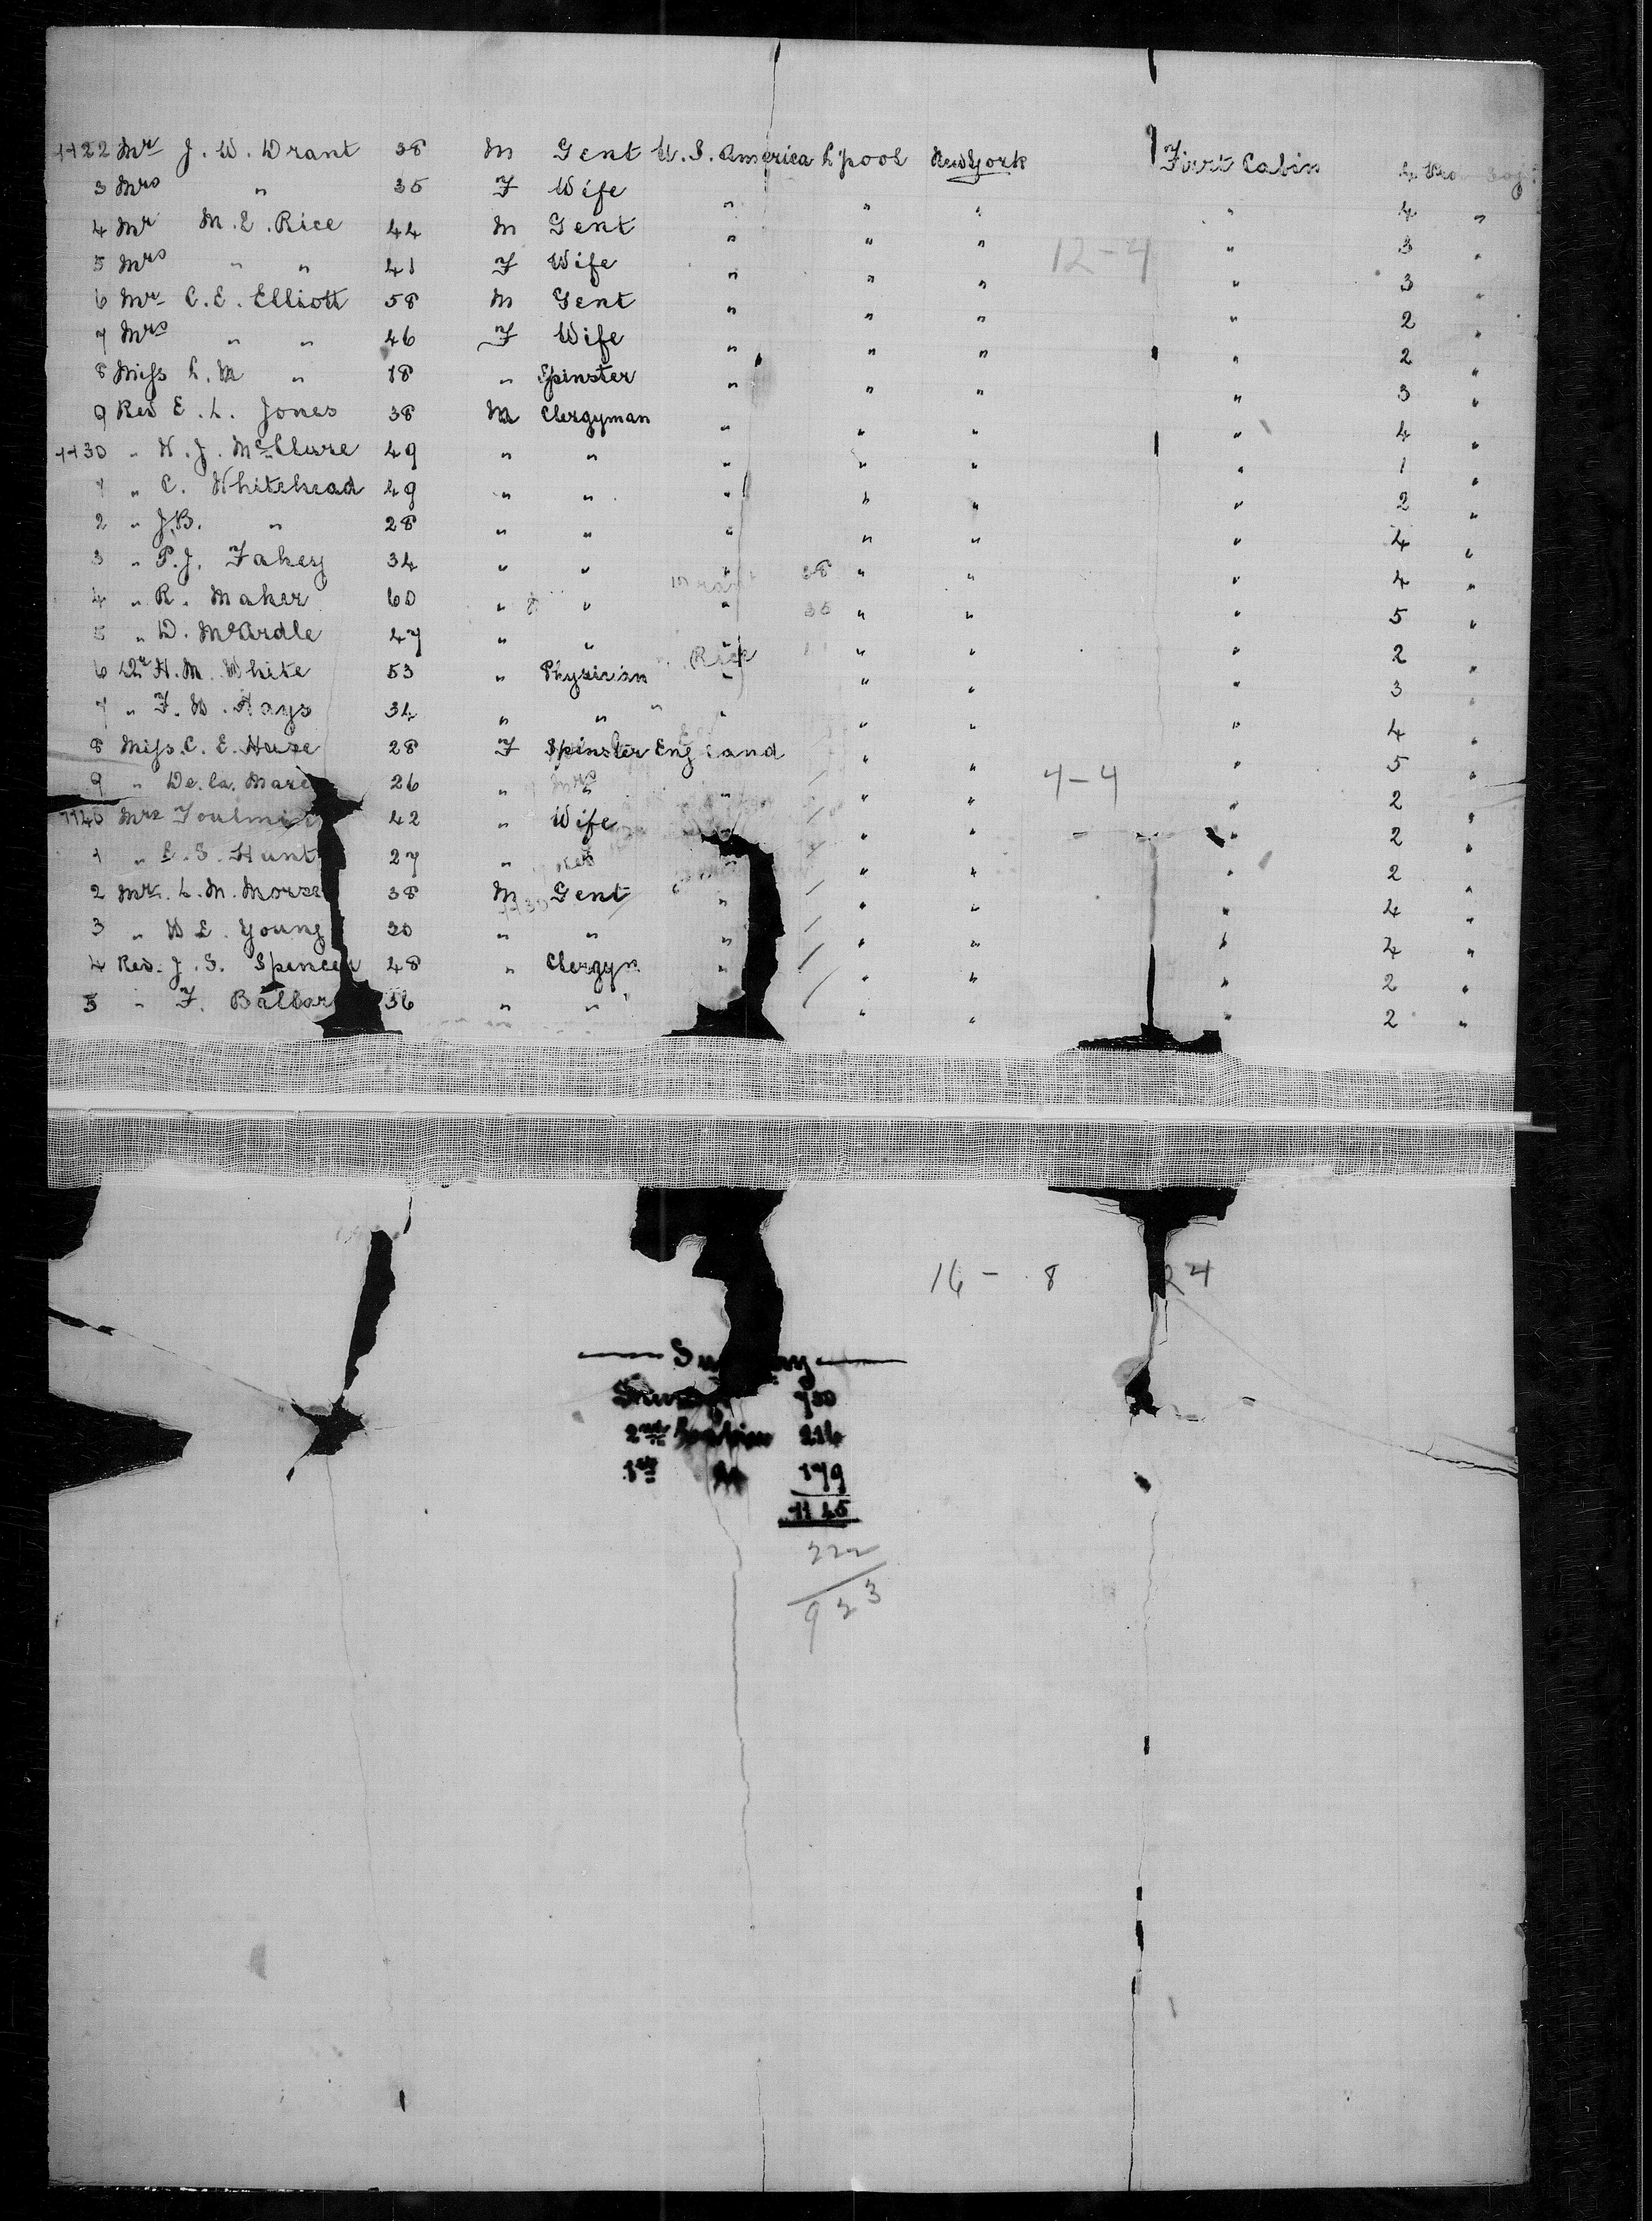 1122 Mr J. W. Drant 38 M Gent U. S. America L'pool New York First Cabin 4
3 Mrs " 35 F Wife " " " " 4 "
4 Mr M. E. Rice 44 M Gent " " " " 3 "
5 Mrs " " 41 F Wife " " " " 3 "
12-4
6 Mr C. E. Elliott 58 M Gent " " " " 2 "
7 Mrs " " 46 F Wife " " " " 2 "
8 Miss L. M " 18 " Spinster " " " " 3 "
9 Rev E. L. Jones 38 M Clergyman " " " " 4 "
1130 " W. J. McClure 49 " " " " " " 1 "
1 " C. Whitehead 49 " " " " " " 2 "
2 " J.B. " 28 " " " " " " 4 "
3 " P. J. Fahey 34 " " " " " " 4 "
4 " R. Maher 60 " " " " " " 5 "
5 " D. McArdle 47 " " " " " " 2 "
6 Dr H. M. White 53 " Physician " " " " 3 "
7 " F. W. Hays 34 " " " " " " 4 "
8 Miss C. E. Huse 28 F Spinster England " " " 5 "
4-4
9 " De. la. Mare 26 " " " " " " 2 "
1140 Mrs Toulmin 42 " Wife " " " " 2 "
1 " E. S. Hunt 27 " " " " " " 2 "
2 Mr. L. M. Morse 38 M Gent " " " " 4 "
3 " W E. Young 30 " " " " " " 4 "
4 Rev. J. S. Spencer 48 " Clergyn " " " " 2 "
5 " F. 36 " " " " " 2 "
16 - 8 24
730
2nd Cabin 216
1st " 179
1145
222
923